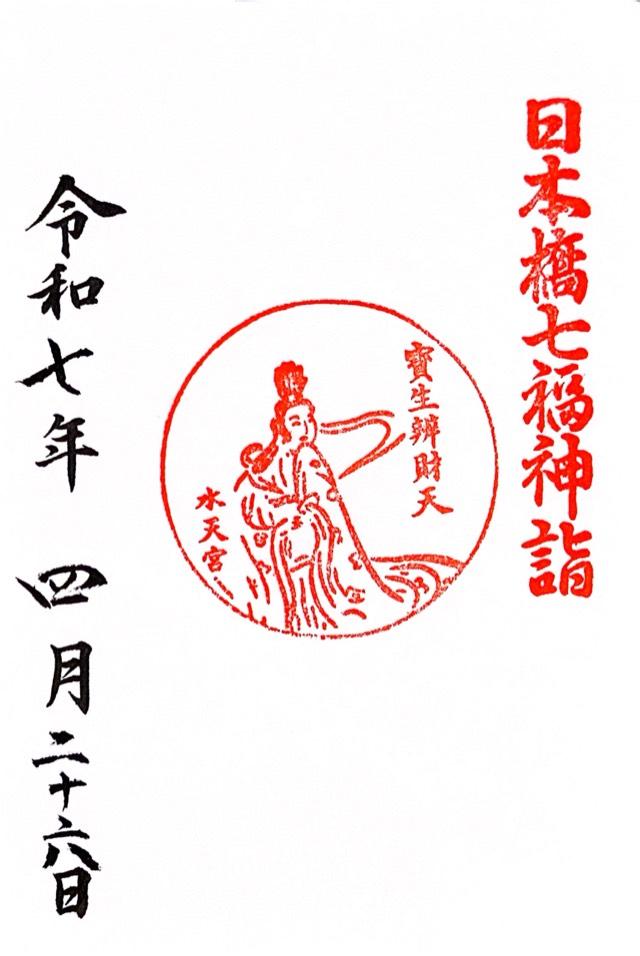 日本橋七福神詣
寳生辨財天
水天宮
令和七年 四月二十六日